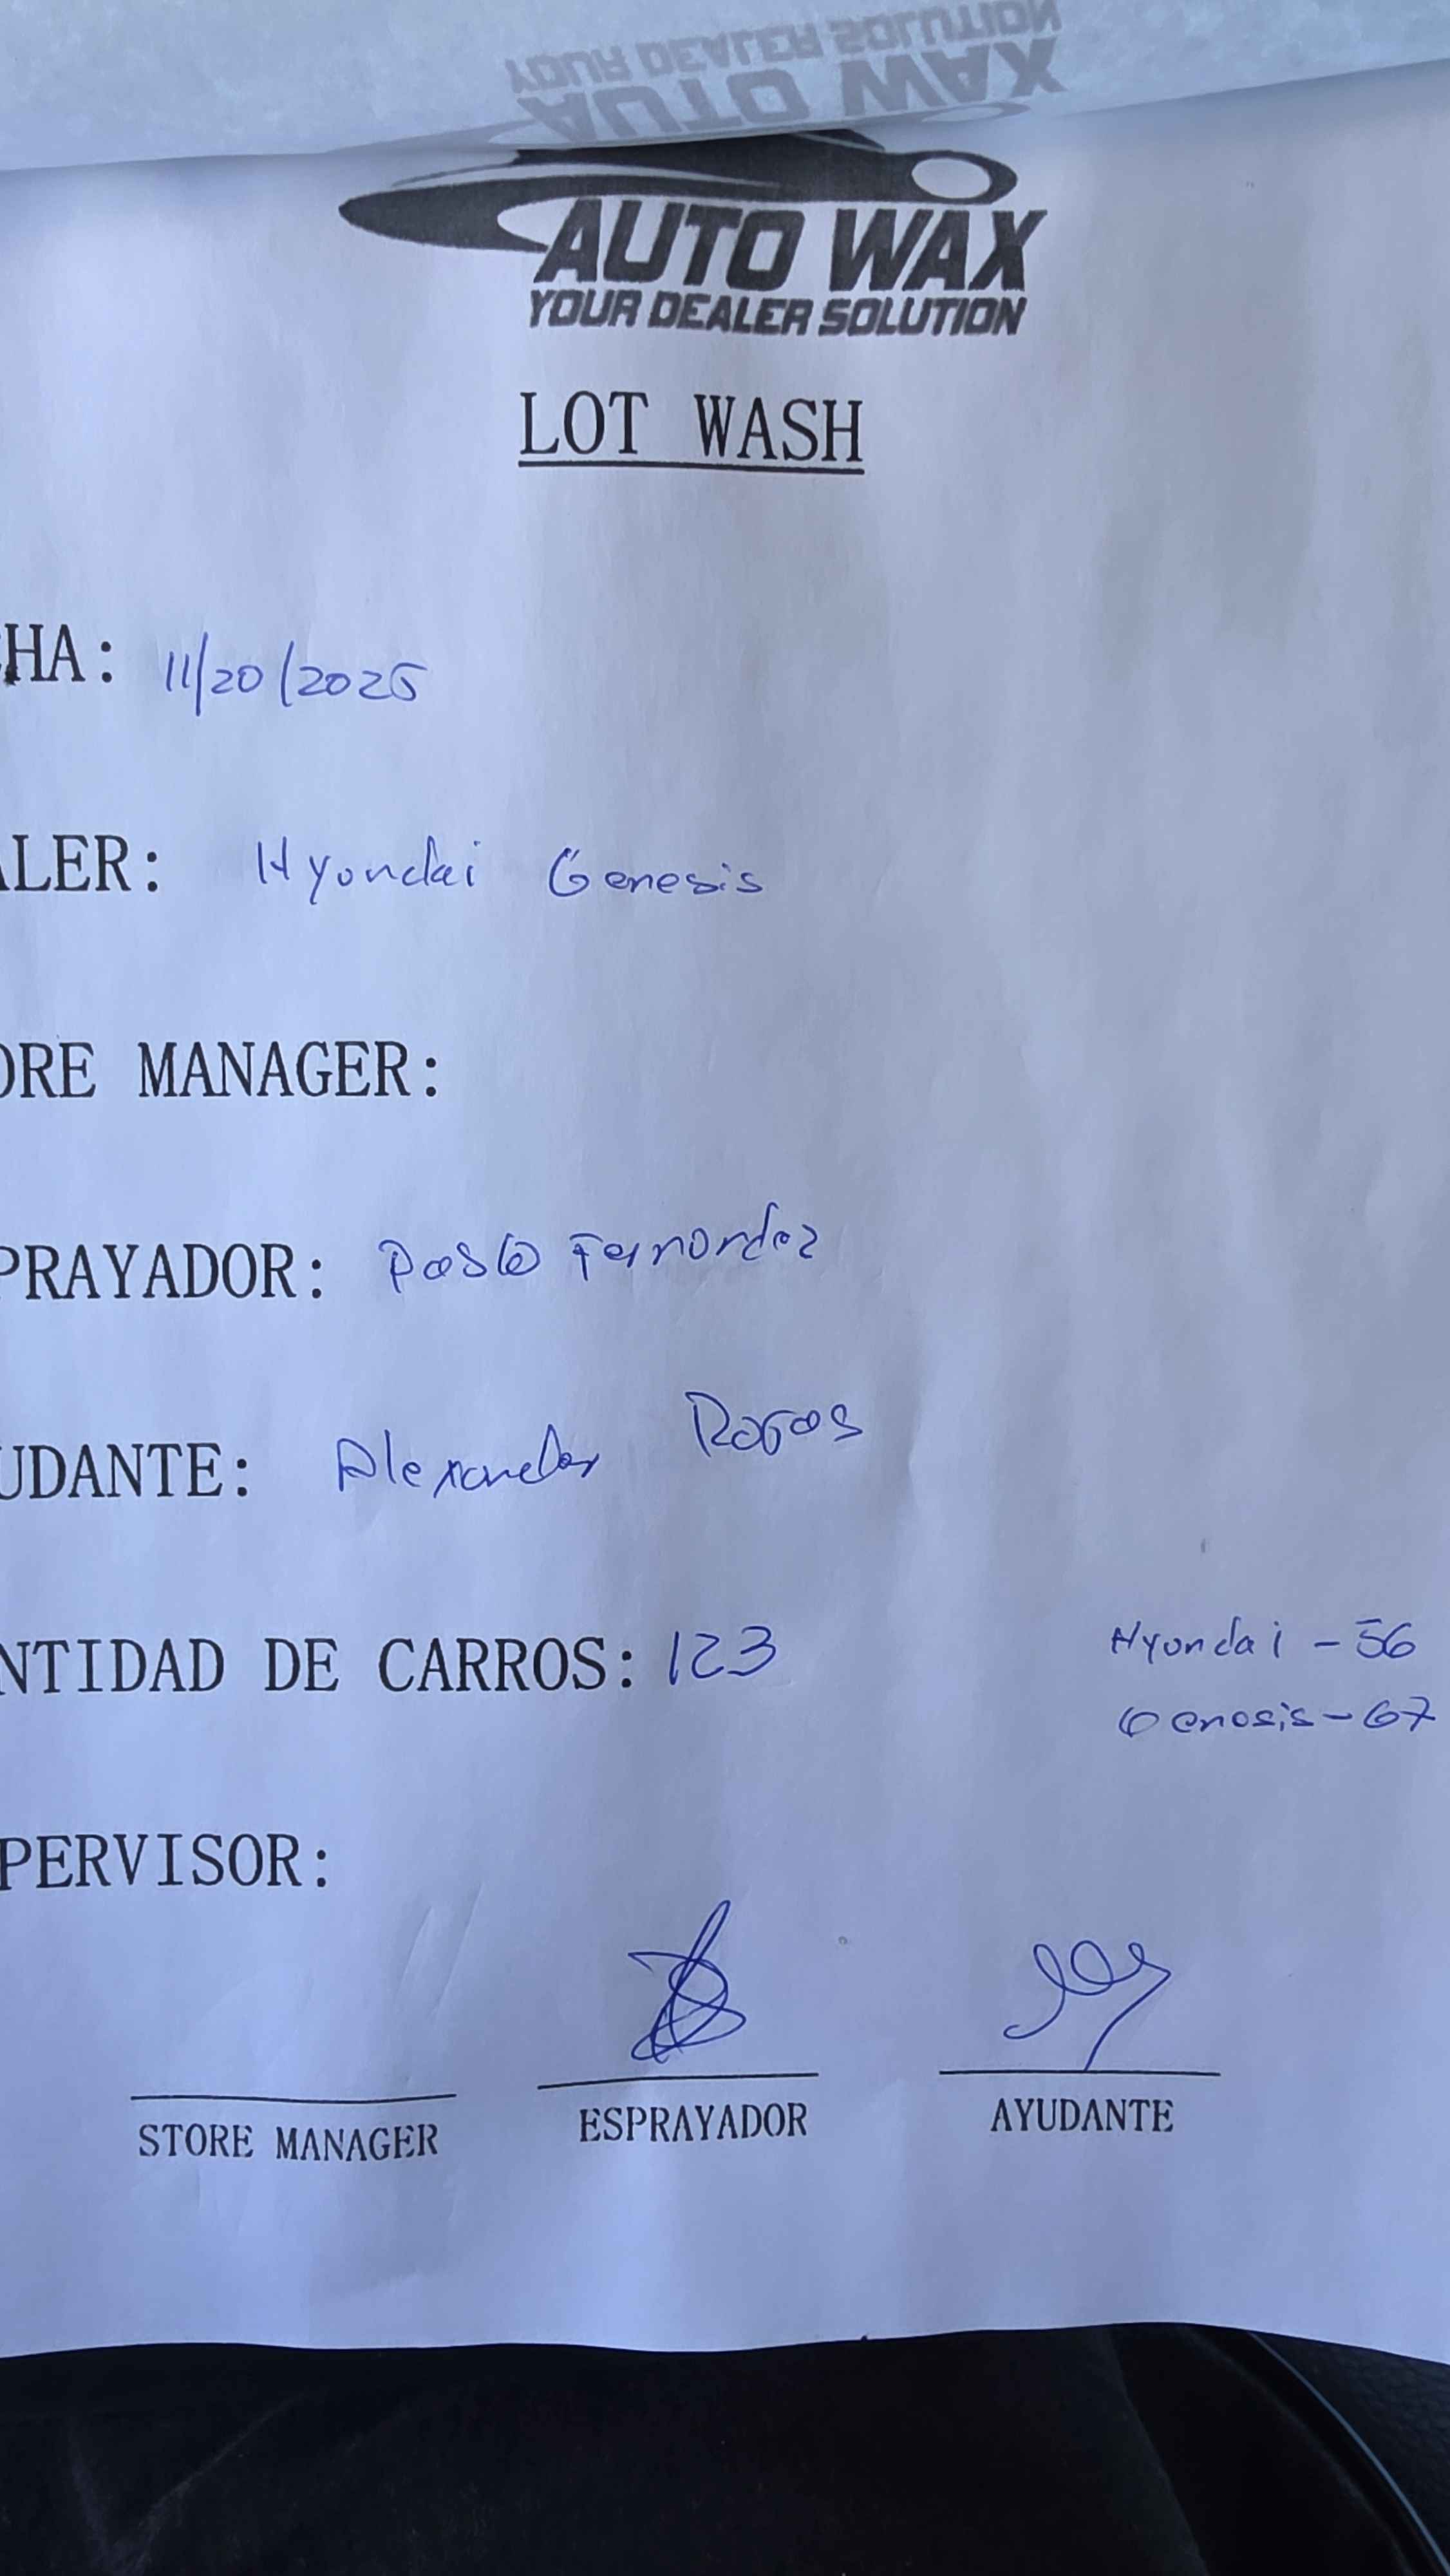 YOUR DEALER SOLUTION
AUTO WAX
AUTO WAX
YOUR DEALER SOLUTION
LOT WASH
HA: 11/20/2025
LER: Hyundai Genesis
ORE MANAGER:
PRAYADOR: Pablo Fernandez
UDANTE: Alexander Rojas
NTIDAD DE CARROS: 123
Hyundai - 56
Genesis - 67
PERVISOR:
STORE MANAGER ESPRAYADOR AYUDANTE